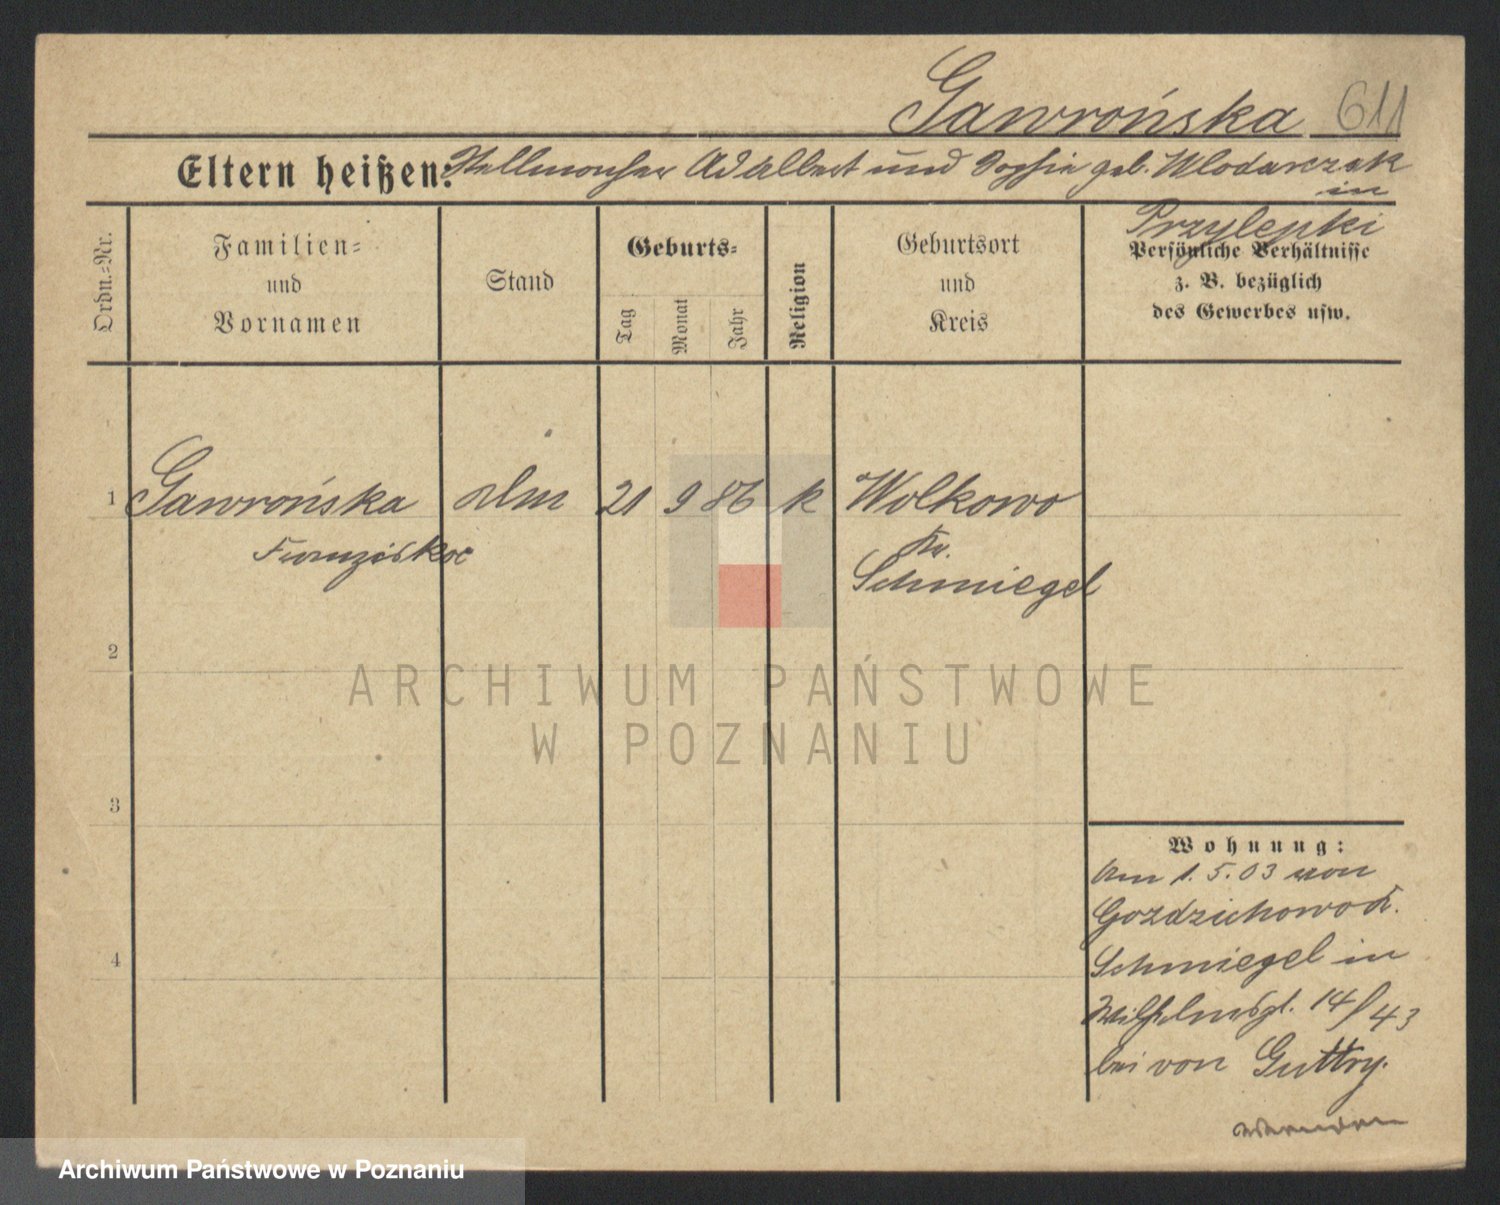 Gawrońska 611
Eltern heißen: Stellmacher Adalbert und Sophie geb. Wlodarczak
in
Przylepki
Ordn.=Nr.
Familien=
und
Vornamen
Stand
Geburts=
Tag
Monat
Jahr
Religion
Geburtsort
und
Kreis
Persönliche Verhältnisse
z. B. bezüglich
des Gewerbes usw.
1 Gawrońska 21 9 86 k Wolkowo
Franziska Kr.
Schmiegel
2
ARCHIWUM PAŃSTWOWE
W POZNANIU
3
4
Wohnung:
Am 1.5.03 von
Gozdzichowo Kr.
Schmiegel in
Wilhelmspl. 14/43
bei von Guttry.
wenden
Archiwum Państwowe w Poznaniu